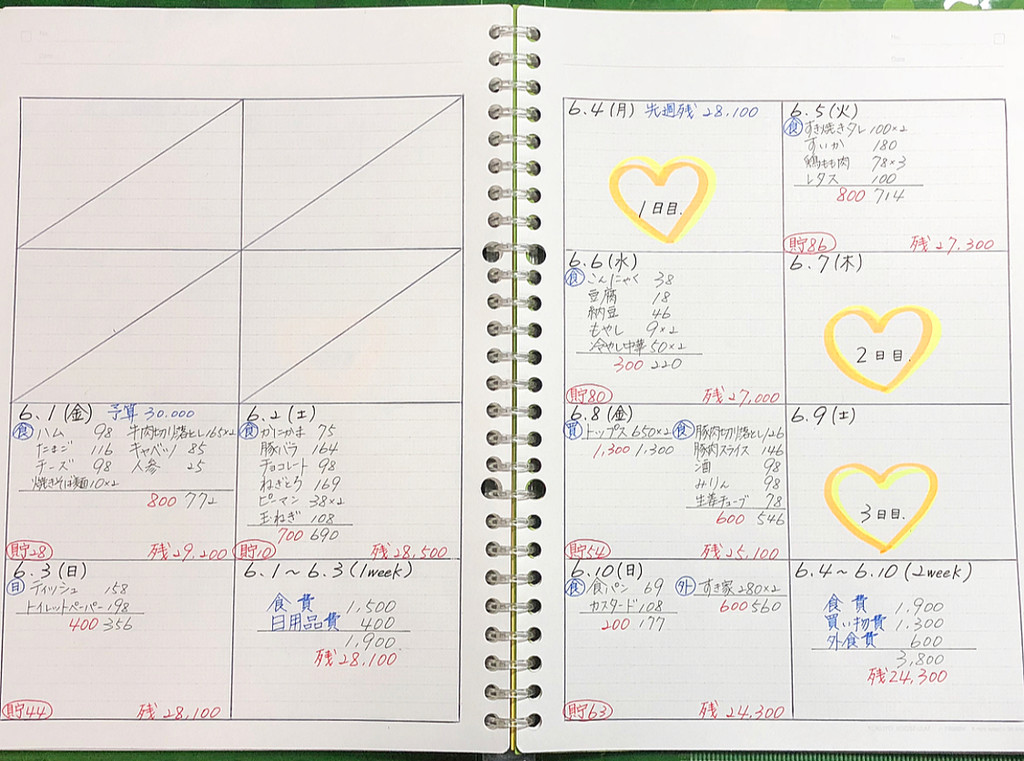 6.1(金) 予算 30.000
食 ハム 98 牛肉切り落とし 165×2
たまご 116 キャベツ 85
チーズ 98 人参 25
焼きそば麺 10×2
800 772
貯28 残29.200
6.2(土)
食 かにかま 75
豚バラ 164
チョコレート 98
ねぎとろ 169
ピーマン 38×2
玉ねぎ 108
700 690
貯10 残28,500
6.3(日)
日 ティッシュ 158
トイレットペーパー 198
400 356
貯44 残28,100
6.1~6.3(1week)
食費 1,500
日用品費 400
1,900
残28,100
6.4(月) 先週残28,100
1日目.
6.5(火)
食 すき焼きタレ 100×2
すいか 180
鶏もも肉 78×3
レタス 100
800 714
貯86 残27,300
6.6(水)
食 こんにゃく 38
豆腐 18
納豆 46
もやし 9×2
冷やし中華 50×2
300 220
貯80 残27,000
6.7(木)
2日目.
6.8(金)
買 トップス 650×2
1,300 1,300
食 豚肉切り落とし 126
豚肉スライス 146
酒 98
みりん 98
生姜チューブ 78
600 546
貯54 残25,100
6.9(土)
3日目.
6.10(日)
食 食パン 69
カスタード 108
200 177
外 すき家 280×2
600 560
貯63 残24,300
6.4~6.10(2week)
食費 1,900
買い物費 1,300
外食費 600
3,800
残24,300